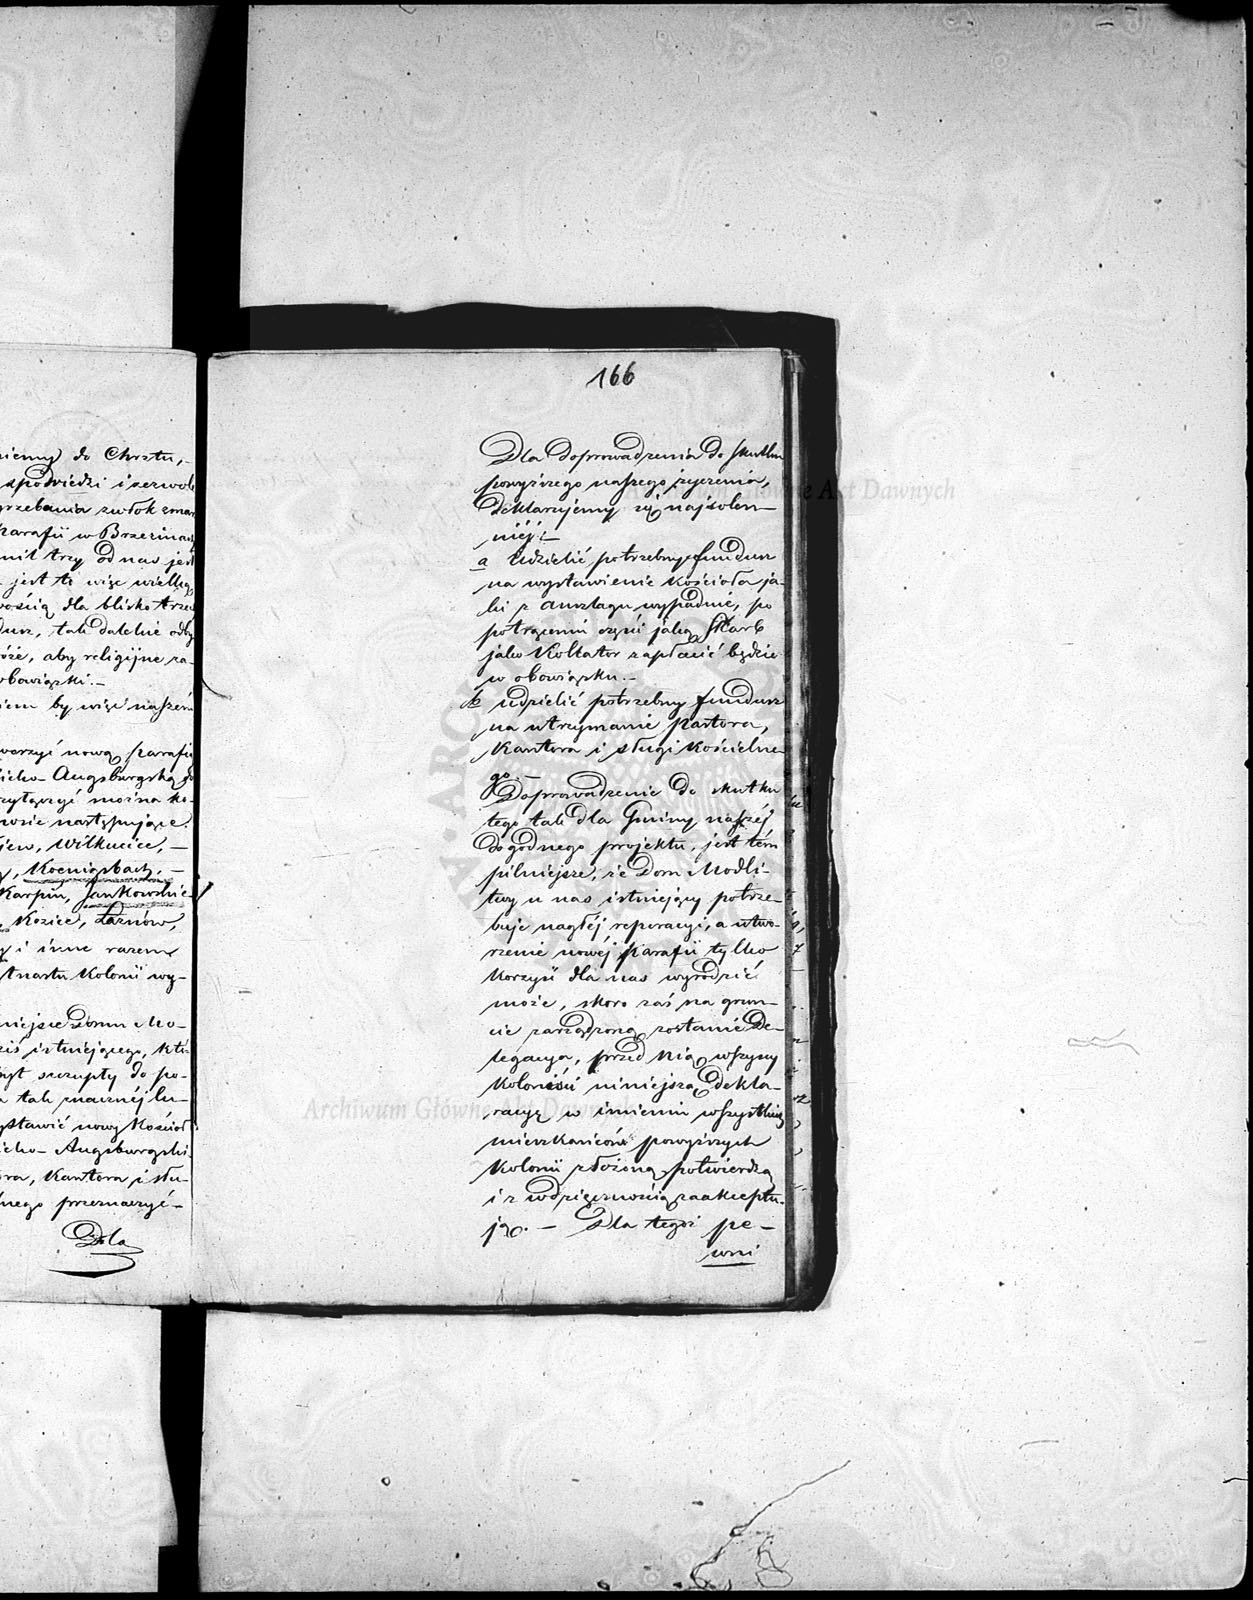 niemy do Chrztu,
spowiedzi i zezwol
grzebania zwłok zmar
Parafii w Brzezinach
mil trzy od nas jest
jest to więc wielką
dla blisko trze
tak dalekie odby
aby religijne za-
obowiązki.–
by więc naszém
worzyć nową parafię
icko-Augsburgską
można ko-
następujące
Wilkucice,–
Koenigsbach,–
Karpin, Jankowskie
Kozice, Łaznów,
i inne razem
Kolonii wy-
Mo-
dziś istniejącego, któ-
szczupły do po-
tak znacznéj lu-
ystawić nowy Kościoł
icko-Augsburgski
ora, Kantora i słu-
lnego przeznaczyć–
Dla
166
Dla doprowadzenia do skutku
powyższego naszego życzenia,
deklarujemy się najsolen-
niéj:–
a Udzielić potrzebny fundusz
na wystawienie kościoła ja-
ki z anszlagu wypadnie, po
potrąceniu części jaką Skarb
jako Kollator zapłacić będzie
w obowiązku.–
b udzielić potrzebny fundusz
na utrzymanie Pastora,
Kantora i sługi kościelne
go.–
Doprowadzenie do skutku
tego tak dla Gminy naszéj
dogodnego projektu, jest tém
pilniejsze, że Dom Modli-
twy u nas istniejący potrze-
buje nagłéj reperacyi, a utwo-
rzenie nowéj parafii tylko
korzyść dla nas wyrodzić
może, skoro zaś na grun-
cie zarządzoną zostanie De-
legacya, przed nią wszyscy
koloniści niniejszą dekla-
racyę w imieniu wszystkich
mieszkańców powyższych
Kolonii złożoną potwierdzą
i z wdzięcznością zaakceptu-
ją.– Dla tegoż pe-
wni